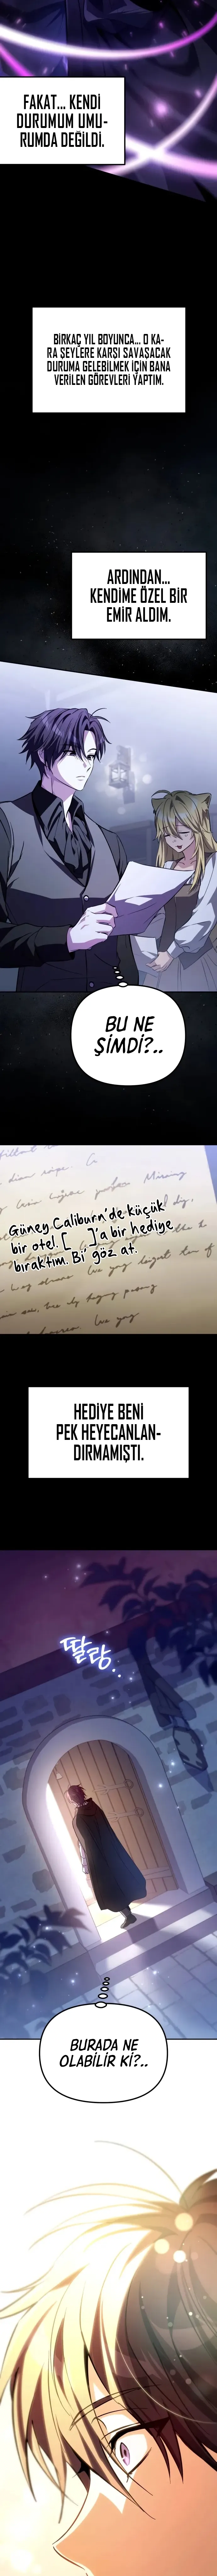 FAKAT... KENDİ
DURUMUM UMU-
RUMDA DEĞİLDİ.
BİRKAÇ YIL BOYUNCA... O KA-
RA ŞEYLERE KARŞI SAVAŞACAK
DURUMA GELEBİLMEK İÇİN BANA
VERİLEN GÖREVLERİ YAPTIM.
ARDINDAN...
KENDİME ÖZEL BİR
EMİR ALDIM.
BU NE
ŞİMDİ?..
Güney Caliburn'de küçük
bir otel. [ ]'a bir hediye
bıraktım. Bi' göz at.
HEDİYE BENİ
PEK HEYECANLAN-
DIRMAMIŞTI.
딸랑..
BURADA NE
OLABİLİR Kİ?..